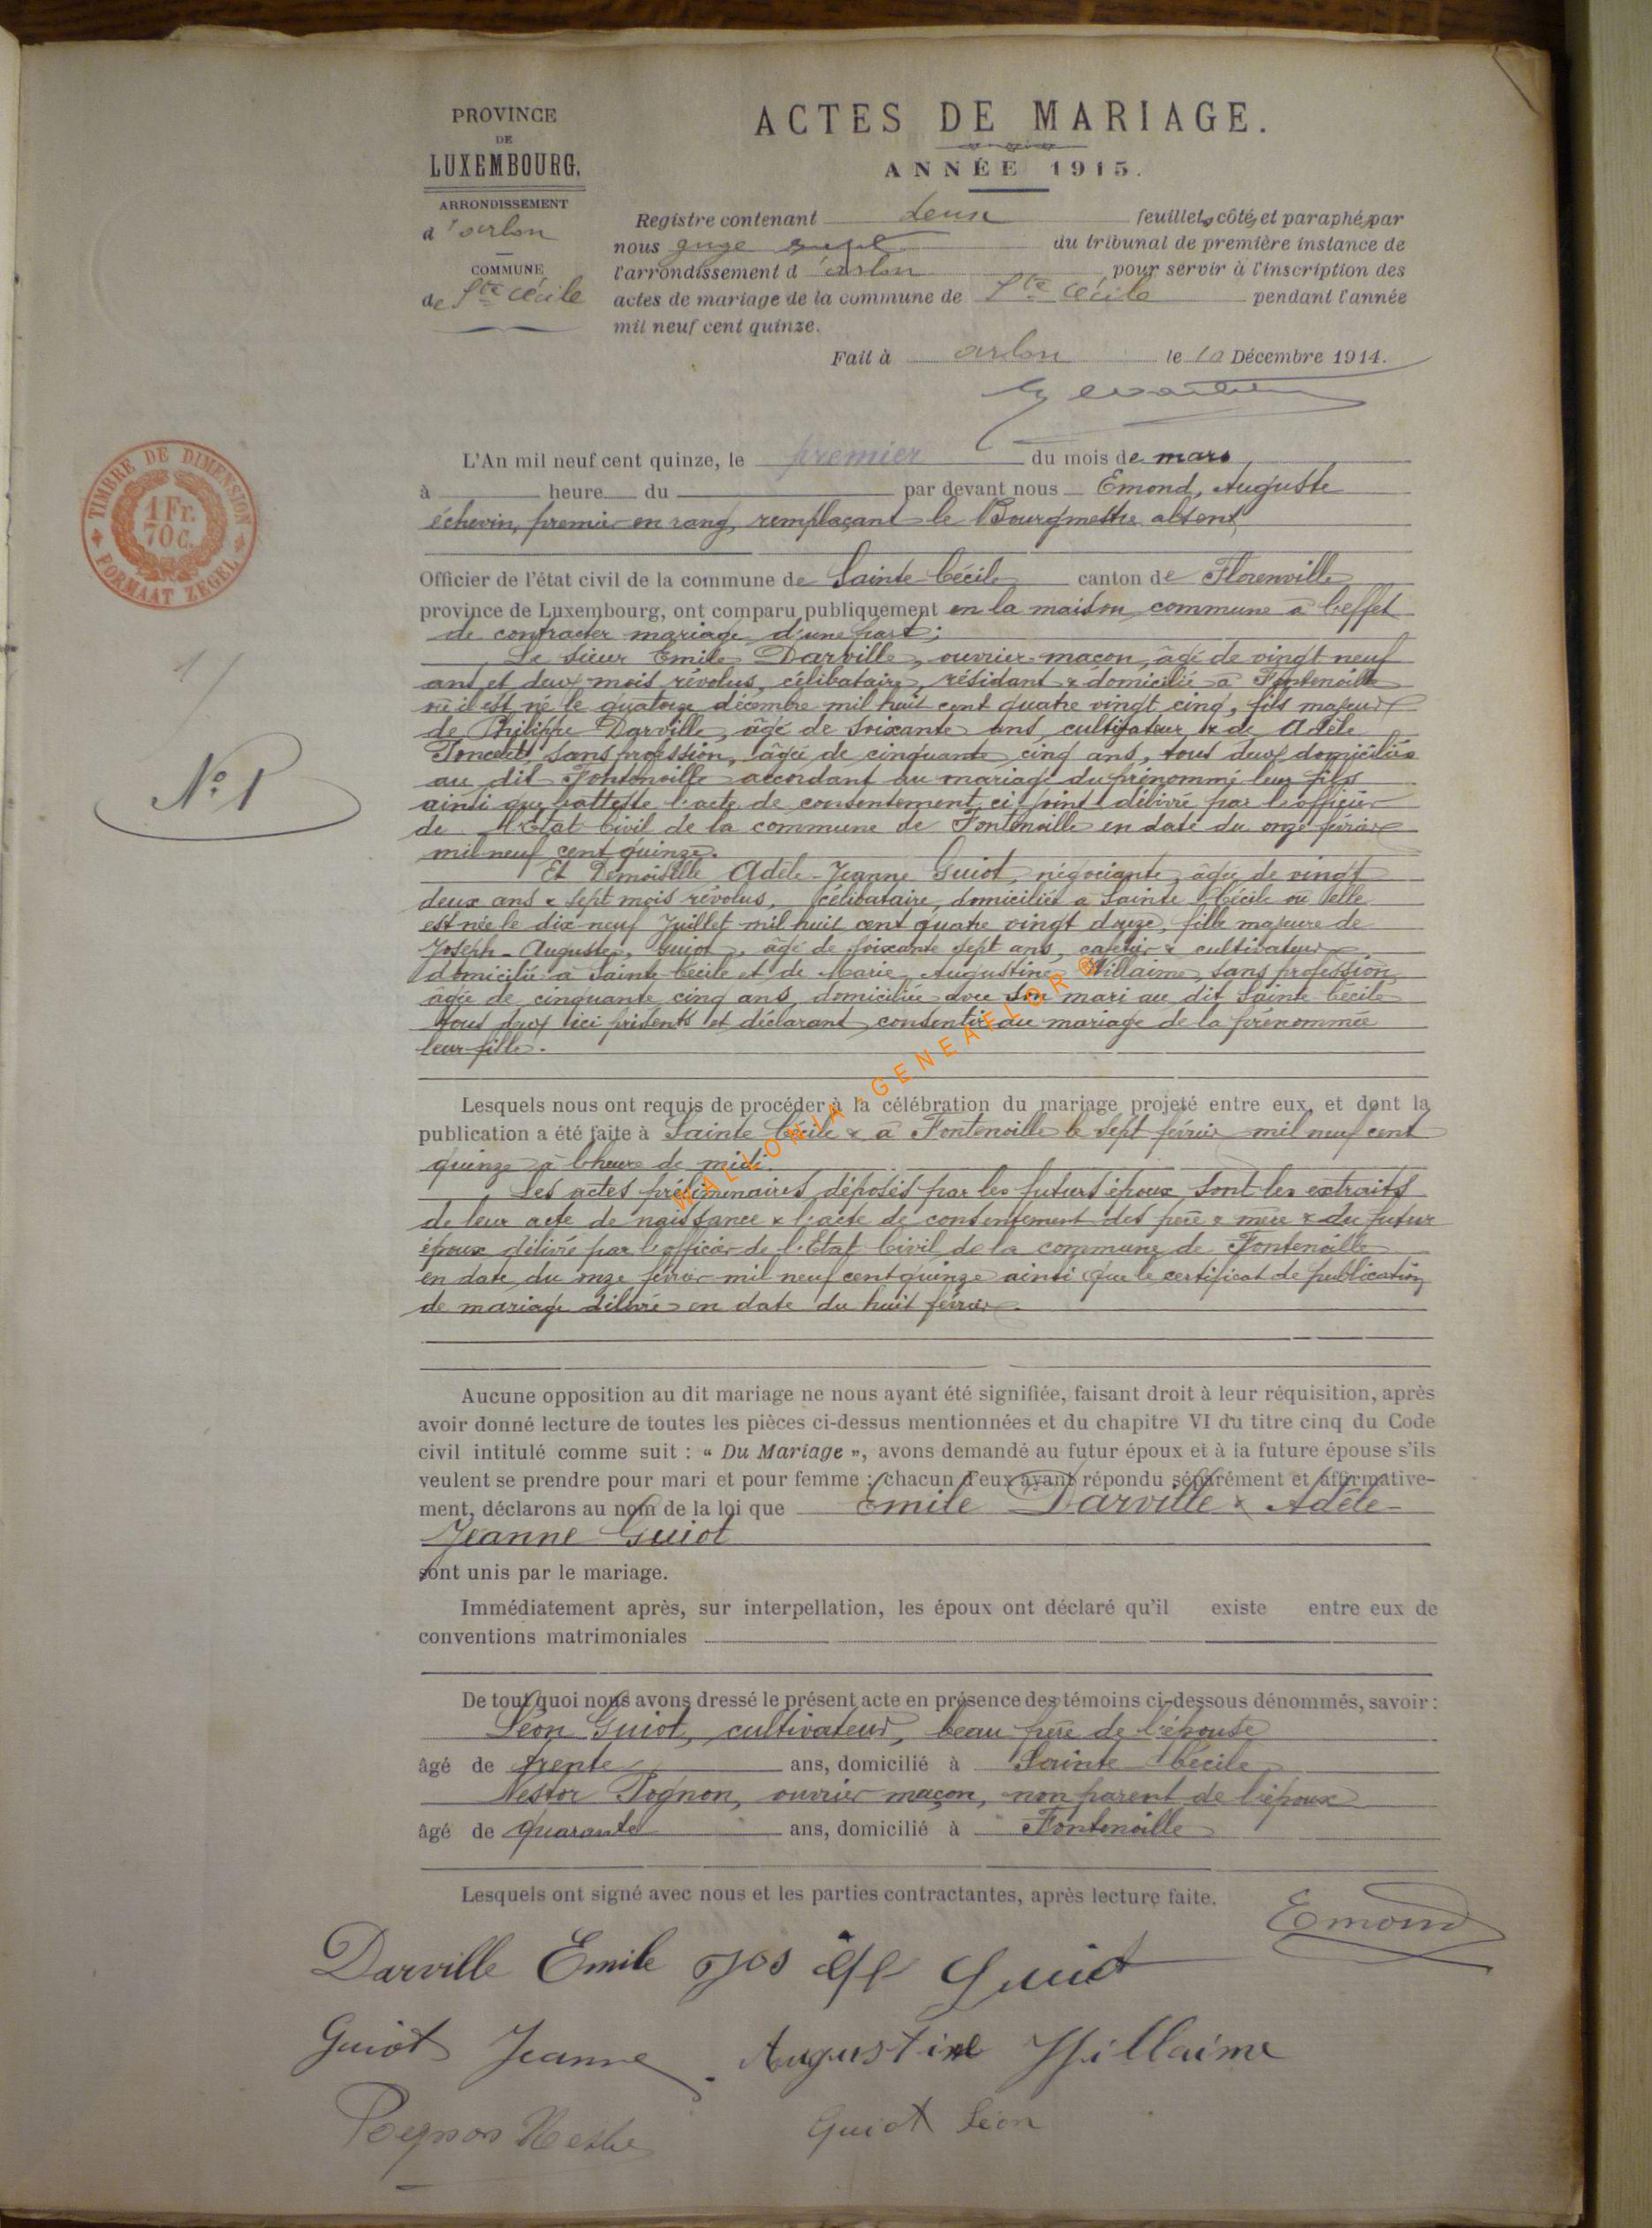 PROVINCE
DE
LUXEMBOURG.
ARRONDISSEMENT
d'arlon
COMMUNE
de Ste Cécile
ACTES DE MARIAGE.
ANNÉE 1915.
Registre contenant deux feuillets, côtés et paraphés par
nous juge du tribunal de première instance de
l'arrondissement d'arlon pour servir à l'inscription des
actes de mariage de la commune de Ste Cécile pendant l'année
mil neuf cent quinze.
Fait à arlon le 10 Décembre 1914.
TIMBRE DE DIMENSION
1 Fr.
70 C.
FORMAAT ZEGEL
1/
N° 1
L'An mil neuf cent quinze, le premier du mois de mars
à heure du par devant nous Emond, Auguste
échevin, premier en rang, remplaçant le Bourgmestre absent
Officier de l'état civil de la commune de Sainte-Cécile canton de Florenville
province de Luxembourg, ont comparu publiquement en la maison commune à l'effet
de contracter mariage d'une part;
Le sieur Emile Darville, ouvrier-maçon, âgé de vingt neuf
ans et deux mois révolus, célibataire, résidant & domicilié à Fontenoille
où il est né le quatorze décembre mil huit cent quatre vingt cinq, fils majeur
de Philippe Darville, âgé de soixante ans, cultivateur & de Adèle
Poncelet, sans profession, âgée de cinquante cinq ans, tous deux domiciliés
au dit Fontenoille accordant au mariage du prénommé leur fils
ainsi que l'atteste l'acte de consentement ci-joint délivré par l'officier
de l'Etat Civil de la commune de Fontenoille en date du onze février
mil neuf cent quinze.
Et Demoiselle Adèle-Jeanne Guiot, négociante, âgée de vingt
deux ans & sept mois révolus, célibataire, domiciliée à Sainte Cécile où elle
est née le dix-neuf Juillet mil huit cent quatre vingt douze, fille majeure de
Joseph-Auguste, Guiot, âgé de soixante sept ans, & cultivateur
domicilié à Sainte Cécile et de Marie, Augustine Hillaime, sans profession
âgée de cinquante cinq ans, domiciliée avec son mari au dit Sainte Cécile
tous deux ici présents et déclarant consentir au mariage de la prénommée
leur fille.
Lesquels nous ont requis de procéder à la célébration du mariage projeté entre eux, et dont la
publication a été faite à Sainte Cécile & à Fontenoille le sept février mil neuf cent
quinze à l'heure de midi.
Les actes préliminaires déposés par les futurs époux, sont les extraits
de leur acte de naissance & l'acte de consentement des père & mère & du futur
époux délivré par l'officier de l'Etat Civil de la commune de Fontenoille
en date du onze février mil neuf cent quinze ainsi que le certificat de publication
de mariage délivré en date du huit février.
Aucune opposition au dit mariage ne nous ayant été signifiée, faisant droit à leur réquisition, après
avoir donné lecture de toutes les pièces ci-dessus mentionnées et du chapitre VI du titre cinq du Code
civil intitulé comme suit : « Du Mariage », avons demandé au futur époux et à la future épouse s'ils
veulent se prendre pour mari et pour femme ; chacun d'eux ayant répondu séparément et affirmative-
ment, déclarons au nom de la loi que Emile Darville & Adèle-
Jeanne Guiot
sont unis par le mariage.
Immédiatement après, sur interpellation, les époux ont déclaré qu'il existe entre eux de
conventions matrimoniales
De tout quoi nous avons dressé le présent acte en présence des témoins ci-dessous dénommés, savoir :
Léon Guiot, cultivateur, beau frère de l'épouse
âgé de trente ans, domicilié à Sainte Cécile
Nestor Pognon, ouvrier maçon, non parent de l'époux
âgé de quarante ans, domicilié à Fontenoille
Lesquels ont signé avec nous et les parties contractantes, après lecture faite.
Emond
Darville Emile Jos Guiot
Guiot Jeanne. Augustine Hillaime
Pognon Nestor Guiot Léon
WALLONIA-GENEAFLOR ©